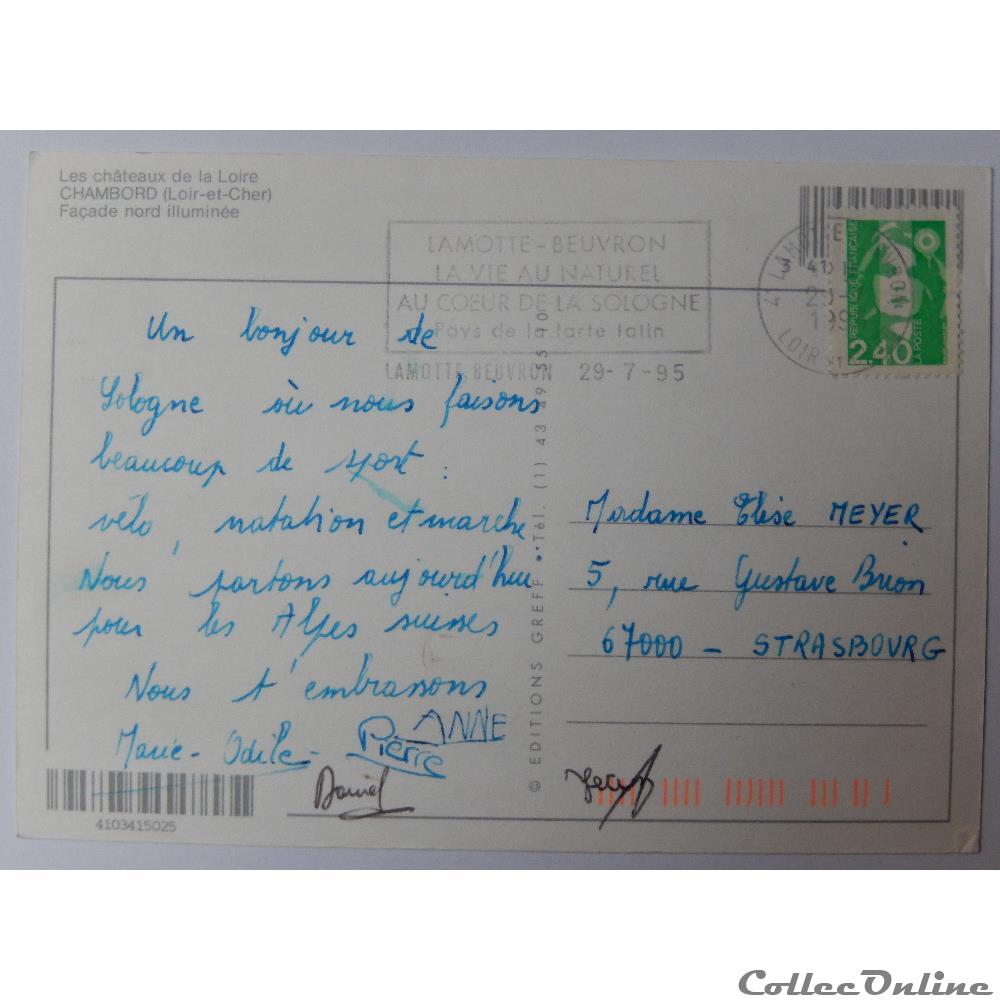 Les châteaux de la Loire
CHAMBORD (Loir-et-Cher)
Façade nord illuminée
LAMOTTE-BEUVRON
LA VIE AU NATUREL
AU COEUR DE LA SOLOGNE
Pays de la tarte tatin
LAMOTTE BEUVRON 29-7-95
41 LAMOTTE BEUVRON
LOIR
REPUBLIQUE FRANÇAISE
2,40
LA POSTE
Un bonjour de
Sologne où nous faisons
beaucoup de sport :
vélo, natation et marche
Nous partons aujourd'hui
pour les Alpes suisses
Nous t'embrassons
Marie-Odile - Pierre ANNE
Daniel
© EDITIONS GREFF • Tél. (1) 43 49 55 10
Madame Elise MEYER
5, rue Gustave Brion
67000 - STRASBOURG
4103415025
CollecOnline